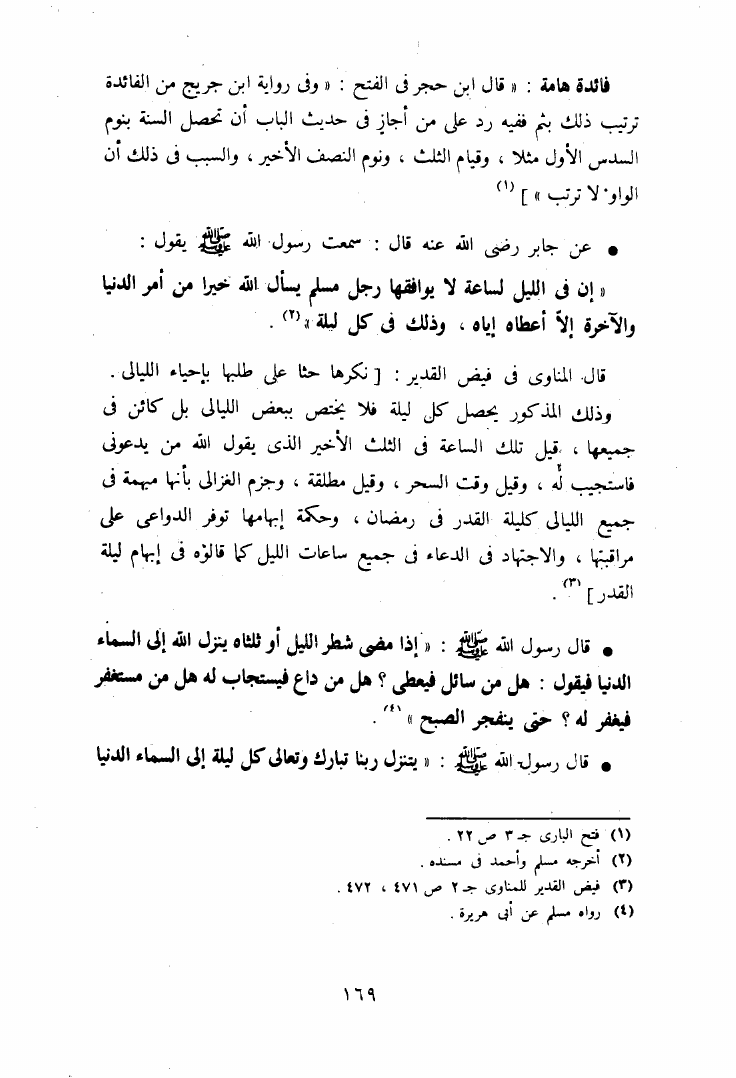 فائدة هامة : « قال ابن حجر فى الفتح : « وفى رواية ابن جريج من الفائدة
ترتيب ذلك بثم ففيه رد على من أجاز فى حديث الباب أن تحصل السنة بنوم
السدس الأول مثلا ، وقيام الثلث ، ونوم النصف الأخير ، والسبب فى ذلك أن
الواو لا ترتب » ] (١)
● عن جابر رضى الله عنه قال : سمعت رسول الله ﷺ يقول :
« إن فى الليل لساعة لا يوافقها رجل مسلم يسأل الله خيرا من أمر الدنيا
والآخرة إلاّ أعطاه إياه ، وذلك فى كل ليلة » (٢) .
قال المناوى فى فيض القدير : [ نكرها حثا على طلبها بإحياء الليالى .
وذلك المذكور يحصل كل ليلة فلا يختص ببعض الليالى بل كائن فى
جميعها ، قيل تلك الساعة فى الثلث الأخير الذى يقول الله من يدعونى
فاستجيب له ، وقيل وقت السحر ، وقيل مطلقة ، وجزم الغزالى بأنها مبهمة فى
جميع الليالى كليلة القدر فى رمضان ، وحكمة إبهامها توفر الدواعى على
مراقبتها ، والاجتهاد فى الدعاء فى جميع ساعات الليل كما قالوه فى إبهام ليلة
القدر ] (٣) .
● قال رسول الله ﷺ : « إذا مضى شطر الليل أو ثلثاه ينزل الله إلى السماء
الدنيا فيقول : هل من سائل فيعطى ؟ هل من داع فيستجاب له هل من مستغفر
فيغفر له ؟ حتى ينفجر الصبح » (٤) .
● قال رسول الله ﷺ : « يتنزل ربنا تبارك وتعالى كل ليلة إلى السماء الدنيا
(١) فتح البارى جـ ٣ ص ٢٢ .
(٢) أخرجه مسلم وأحمد فى مسنده .
(٣) فيض القدير للمناوى جـ ٢ ص ٤٧١ ، ٤٧٢ .
(٤) رواه مسلم عن أبى هريرة .
١٦٩